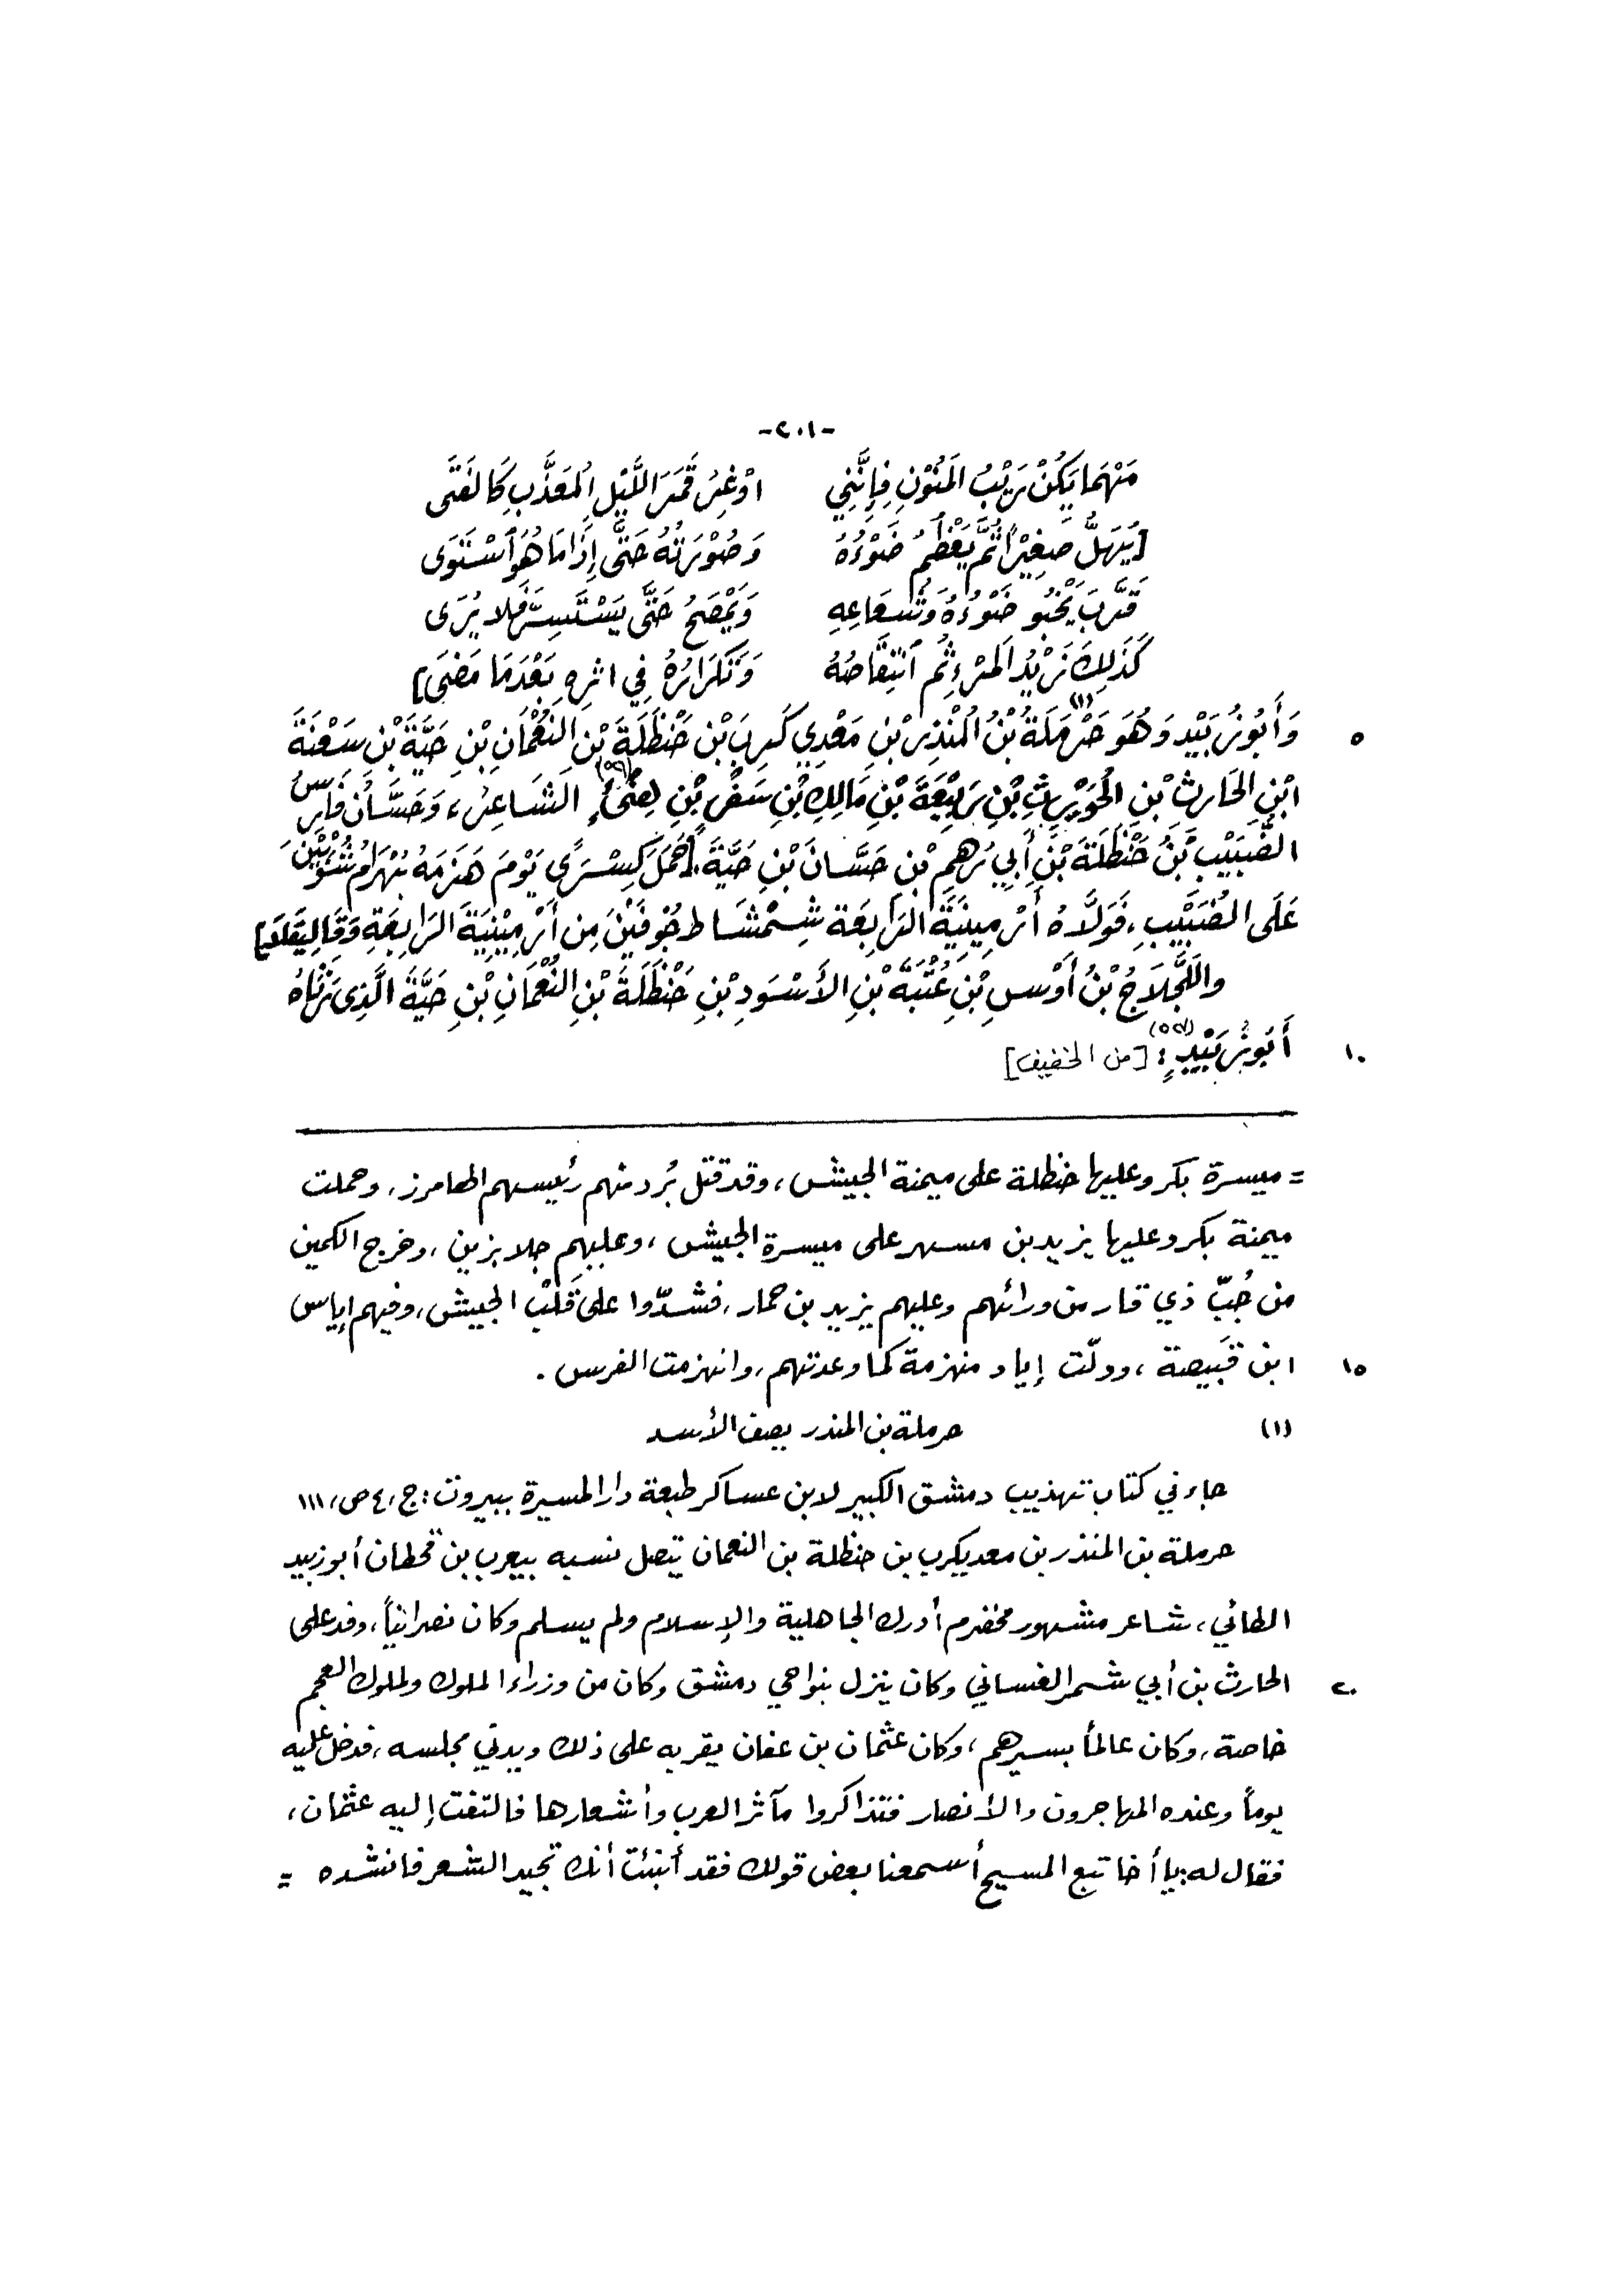 -٢٠١-
مَهْمَا يَكُنْ رَيْبُ المَنُوْنِ فَإِنَّنِي أَوْغِرُ قَمَرَ اللَّيْلِ المُعَذَّبِ كَالفَتَى
[يُهَلُّ صَغِيْرًا ثُمَّ يَعْظُمُ ضَوْءُهُ وَصُوْرَتُهُ حَتَّى إِذَا مَا هُوَ ٱسْتَوَى
تَقَرَّبَ يَخْبُو ضَوْءُهُ وَشُعَاعِهِ وَيَمْصَحُ حَتَّى يَسْتَسِرَّ فَلا يُرَى
كَذَلِكَ زَيْدُ المَرْءِ ثُمَّ ٱنْتِقَاصُهُ وَتَكْرَارُهُ فِي اثرِهِ بَعْدَمَا مَضَى]
٥ وَأَبُو زُبَيْدٍ وَهُوَ حَرْمَلَةُ(١) بْنُ المُنْذِرِ بْنِ مَعْدِي كَرِبَ بْنِ حَنْظَلَةَ بْنِ النُعْمَانِ بْنِ حَيَّةَ بْنِ سَعْنَةَ
ابْنِ الحَارِثِ بْنِ الحُوَيْرِثِ بْنِ رَبِيْعَةَ بْنِ مَالِكِ بْنِ سَفْرِ بْنِ هِنْءٍ الشَاعِرُ، وَحَسَّانُ فَارِسُ
الضُّبَيْبِ بْنُ حَنْظَلَةَ بْنِ أَبِي رُهْمِ بْنِ حَسَّانَ بْنِ حَيَّةَ. [حَمَلَ كِسْرَى يَوْمَ هَزَمَهُ بَهْرَامُ شُوْبِيْنَ
عَلَى الضُبَيْبِ، فَوَلَّاهُ أَرْمِينِيَةَ الرَابِعَة شِمْشَاط خُوفَيْنَ مِن أَرْمِيْنِيَةَ الرَابِعَةِ وَقَالِيقَلَا]
وَاللَّجْلَاجُ بْنُ أَوْسِ بْنِ عُتْبَةَ بْنِ الأَسْوَدِ بْنِ حَنْظَلَةَ بْنِ النُعْمَانِ بْنِ حَيَّةَ الَّذِى رَثَاهُ
١٠ أَبُو زُبَيْدٍ: [من الخفيف]
= ميسرة بكر وعليها حنظلة على ميمنة الجيش، وقد قتل بُرد منهم رئيسهم الهامرز، وحملت
ميمنة بكر وعليها يزيد بن مسهر على ميسرة الجيش، وعليهم جلابزين، وخرج الكمين
من جُبّ ذي قار من ورائهم وعليهم يزيد بن حمار، فشدّوا على قَلْب الجيش، وفيهم إياس
١٥ ابن قَبَيصة، وولّت إياد منهزمة كما وعدتهم، وانهزمت الفرس.
(١) حرملة بن المنذر يصف الأسد
جاء في كتاب تهذيب دمشق الكبير لابن عساكر طبعة دار المسيرة ببيروت: ج، ٤ ص، ١١١
حرملة بن المنذر بن معد يكرب بن حنظلة بن النعمان يتصل نسبه بيعرب بن قحطان أبو زبيد
الطائي، شاعر مشهور مخضرم أدرك الجاهلية والإسلام ولم يسلم وكان نصرانياً، وفد على
٢٠ الحارث بن أبي شمر الغساني وكان ينزل بنواحي دمشق وكان من وزراء الملوك ولملوك العجم
خاصة، وكان عالماً بسيرهم، وكان عثمان بن عفان يقربه على ذلك ويدني مجلسه، فدخل عليه
يوماً وعنده المهاجرون والأنصار فتذاكروا مآثر العرب وأشعارها فالتفت إليه عثمان،
فقال له: يا أخا تبع المسيح أسمعنا بعض قولك فقد أنبئت أنك تجيد الشعر فانشده =